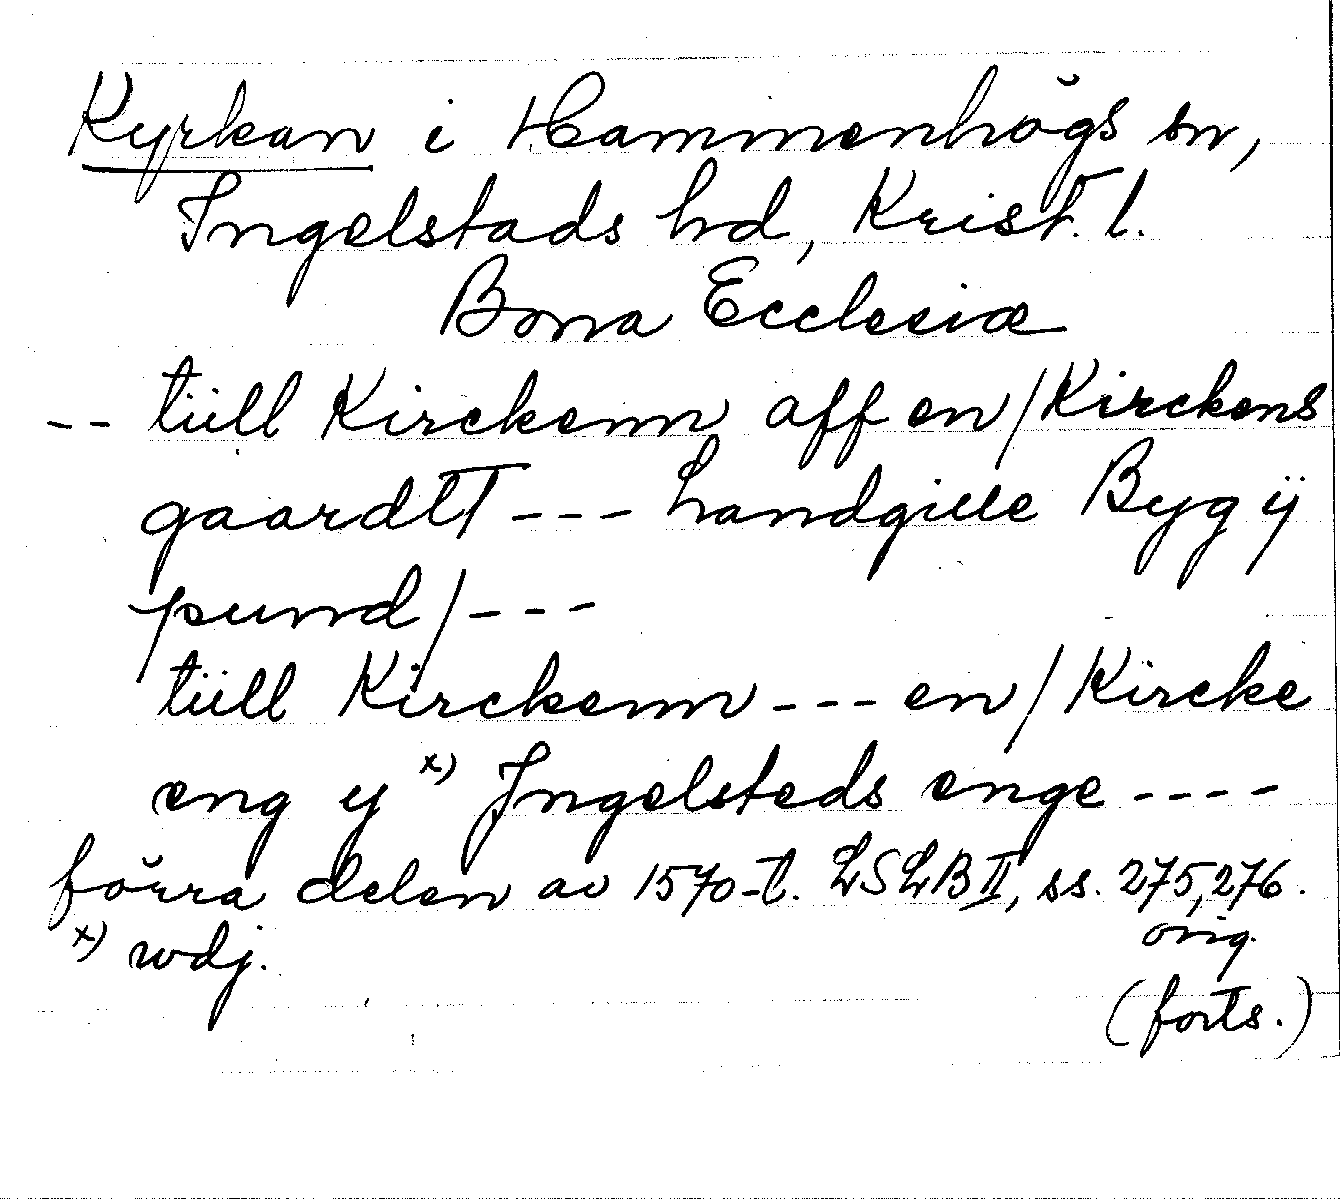 Kyrkan i Hammenhögs sn,
Ingelstads hd, Krist. l.
Bona Ecclesiæ
-- tiill Kirckenn aff en / Kirckens
gaardtt --- Landgille Byg ij
pund / ---
tiill Kirckenn --- en / Kircke
eng y x) Ingelsteds enge ----
förra delen av 1570-t. LSLB II, ss. 275, 276.
orig.
x) wdj.
(forts.)